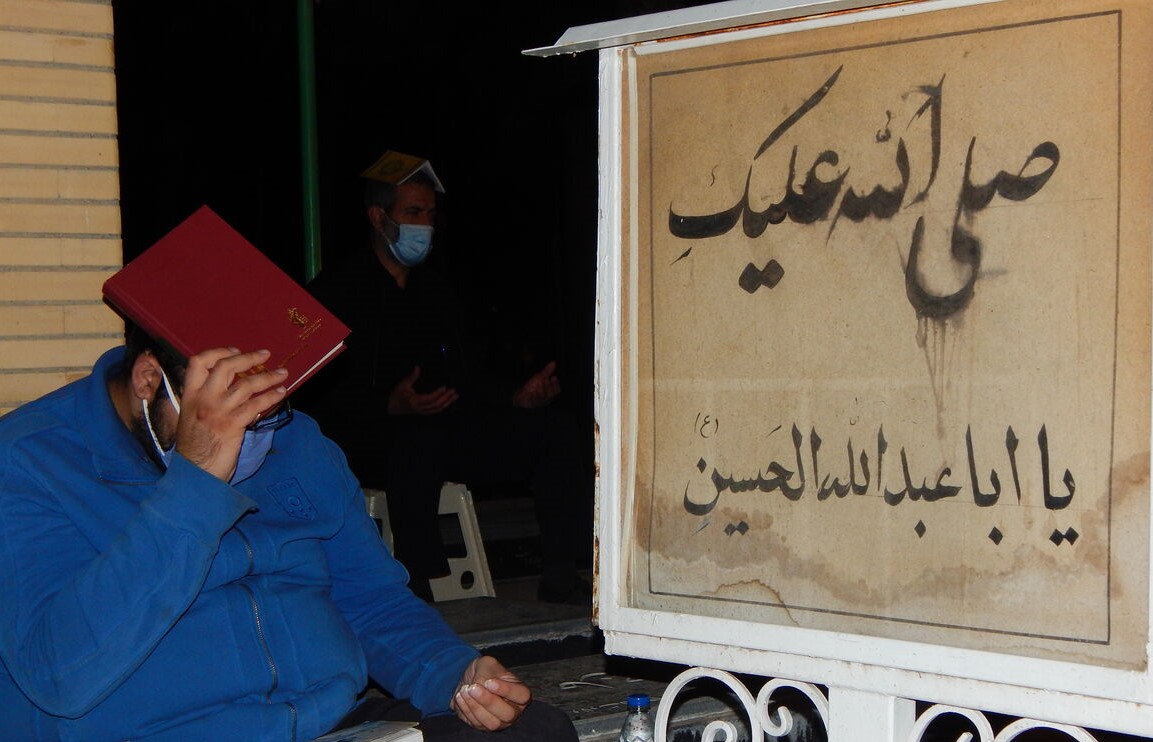 صلی الله علیکِ
یا ابا عبدالله الحَسینِ (ع)